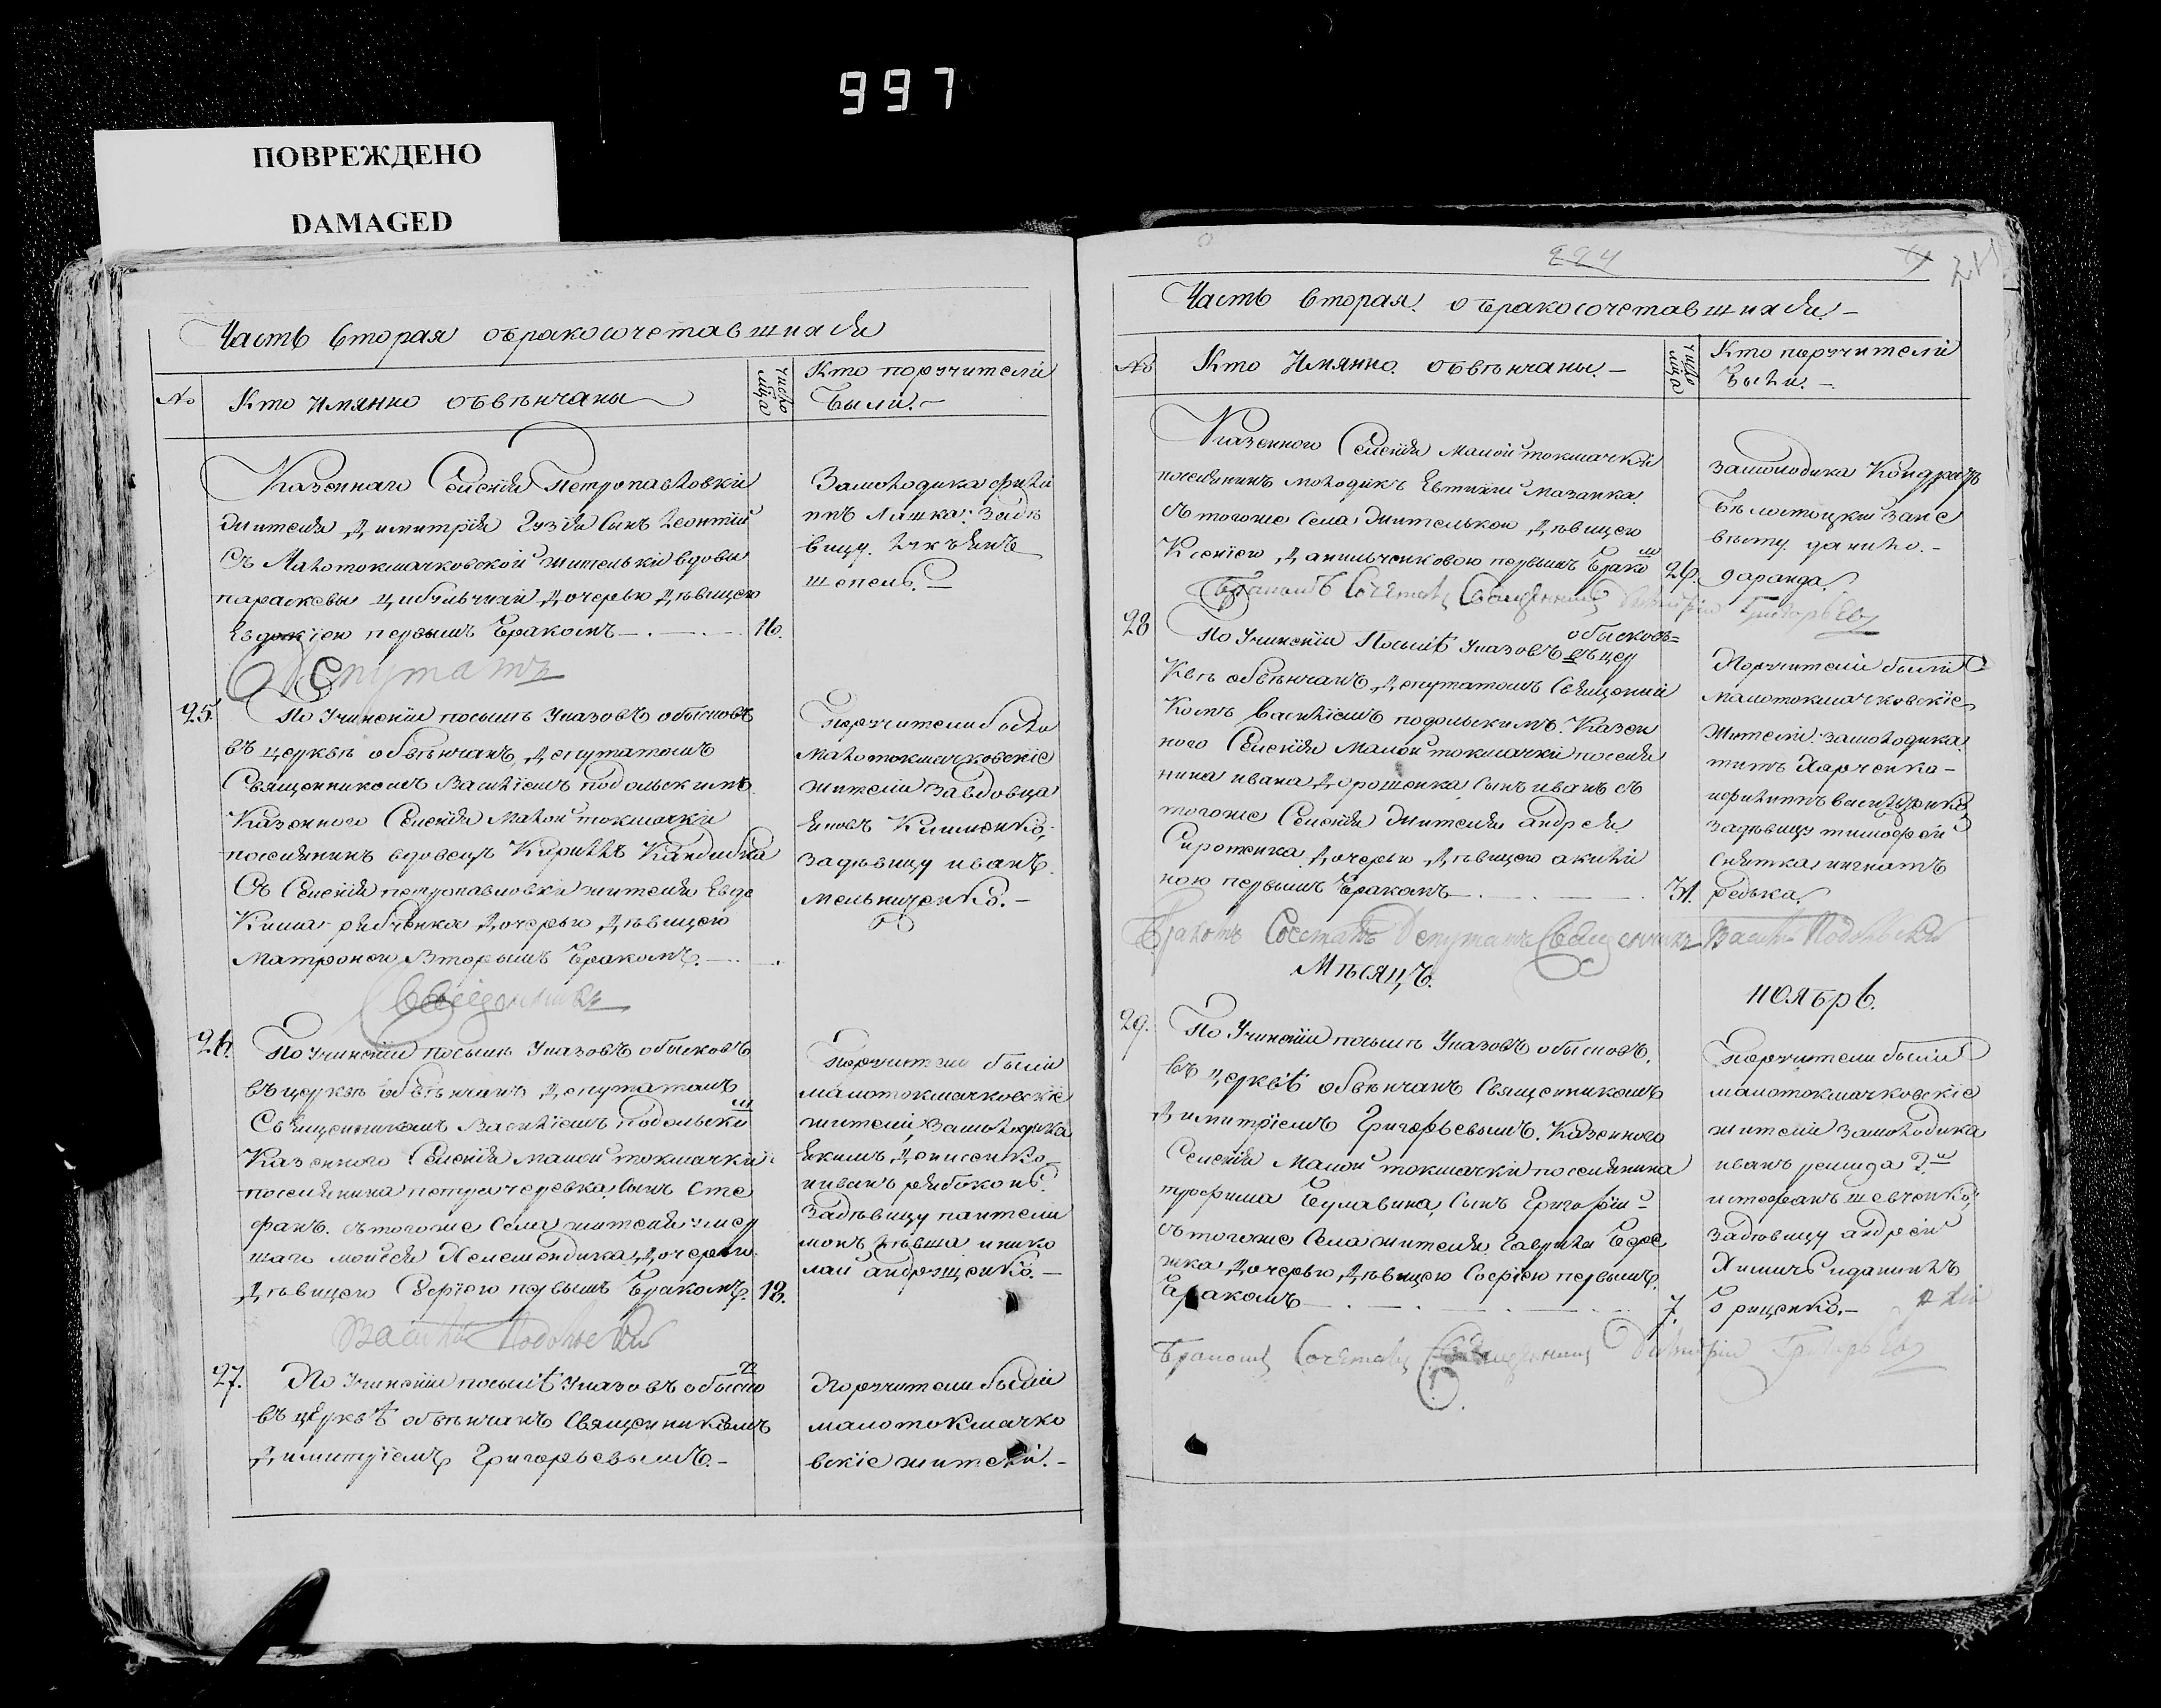 997
ПОВРЕЖДЕНО
DAMAGED
Часть вторая обракосочетавшихся
№ Кто Имянно объвѣнчаны число мѣца Кто поручители
были. –
Казеннаго Селенія Петропавловки
жителя Димитрія сынъ Леонтій
Съ Малотокмачковской жительки вдовы
параскевы дочерью Дѣвицею
Евдокіею первымъ бракомъ 16.
Замолодика фили
ппъ Ляшка: Задѣ
вицу.
Депутатъ
25. По Учиненіи посылѣ Указовъ обысковъ
въ церквѣ обвѣнчанъ, Депутатомъ
Священникомъ Василіемъ подольскимъ
Казенного Селенія Малой токмачки
поселянинъ вдовецъ Кириллъ Кандыбка
Съ Селенія петропавловки жителя Евдо
Кима рябченка Дочерью Дѣвицею
Матроною Вторымъ Бракомъ. –
поручители было
Малотокмачковскіе
жители Завдовца
Яковъ Клименко,
Задѣвицу иванъ
Мельниченко. –
Священникъ
26. По Учиненіи посылѣ Указовъ обысковъ
въ церквѣ обвѣнчанъ Депутатомъ
Священникомъ Василіемъ Подольски м
Казенного Селенія малой токмачки
поселянина петра черевка, сынъ Сте
фанъ. съ тогоже Села жителя умер
шаго моисея Дочерью
Дѣвицею Софіею первымъ Бракомъ. 18.
поручители были
малотокмачковскіе
жители, Замолодика
Якимъ Денисенко
иванъ рябоконь.
Задѣвицу пантели
монъ и нико
лай андрущенко. –
Василій Подольскій
27. По Учиненіи посылѣ Указовъ обыско
въ церквѣ обвѣнчанъ Священникомъ
Димитріемъ Григорьевымъ. –
Поручители были
малотокмачко
вскіе жители. –
224
Часть вторая. обракосочетавшихся. –
№ Кто Имянно. объвѣнчаны. – число мѣца Кто поручители
были. –
Казенного Селенія малой токмачки
поселянинъ молодикъ Евтихій мазанка
съ тогоже Села, Жителькою Дѣвицею
Ксеніею Данильченковою первымъ Брако м 26.
замолодика Кондратъ
Бѣлостоцкій зане
вѣсту данило. –
гаранда.
Бракомъ Сочеталъ Священникъ Димитрій Григорьевъ
28 По Учиненіи Посылѣ Указовъ обысковъ=
въ цер
Квѣ обвѣнчанъ Депутатомъ Священни
комъ Василіемъ подольскимъ. Казен
ного Селенія малой токмачки поселя
нина ивана Дорошенка, сынъ иванъ съ
тогоже Селенія Жителя андрея
Сиротенка Дочерью Дѣвицею акили
ною первымъ Бракомъ 31.
Поручители были
малотокмачковскіе
жители. замолодика
титъ Харченко –
задѣвицу тимофей
Снятка игнатъ
редька.
Бракомъ Сочеталъ Депутатъ Священникъ Василій Подольскій
Мѣсяцъ.
ноябрь.
29. По Учиненіи посылѣ Указовъ обысковъ.
въ церквѣ обвѣнчанъ Священникомъ
Димитріемъ Григорьевымъ. Казенного
Селенія Малой токмачки поселянина
трофима Булавина, сынъ Григорій –
съ тогоже Села жителя Гаврила
Дочерью Дѣвицею Софіею первымъ
Бракомъ 7.
поручители были
малотокмачковскіе
жители замолодика
иванъ 2й
истефанъ шевченко,
задѣвицу андрей
Химичъ иданіилъ
Гриценко. –
Бракомъ Сочеталъ Священникъ Димитрій Григорьевъ